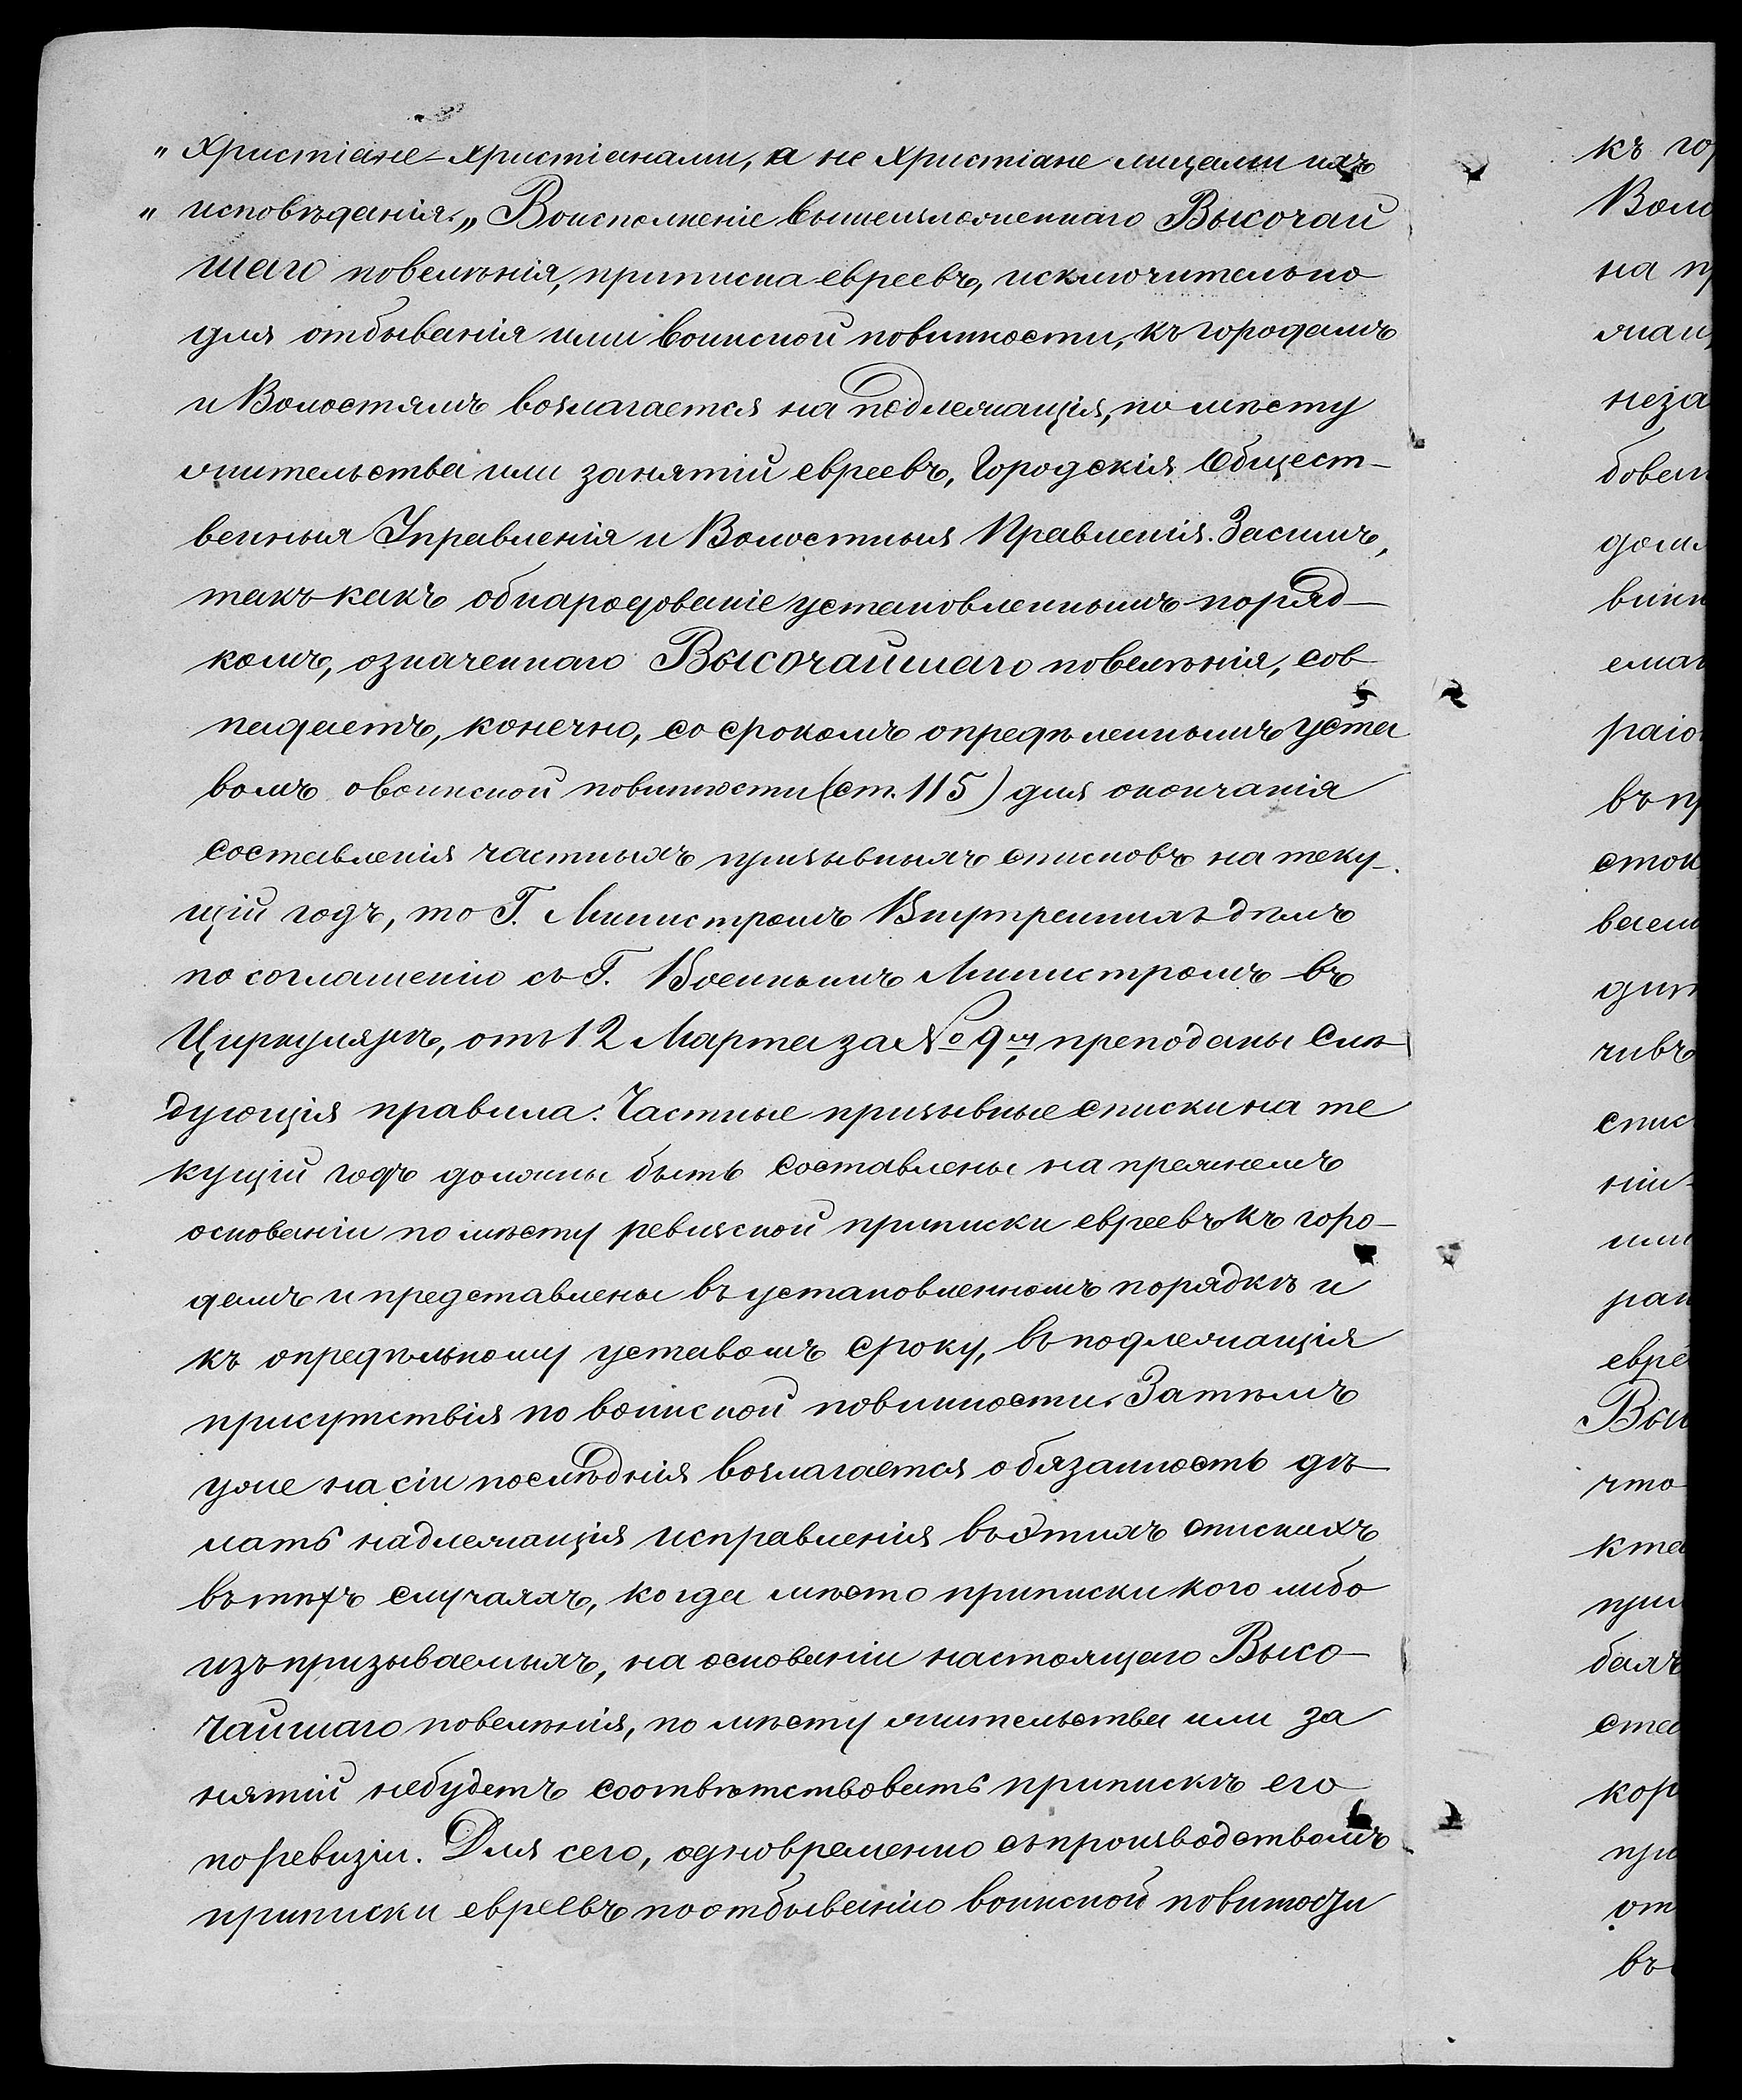 „ Христіане – христіанами, а не христіане лицами ихъ
„ исповѣданія.„ Воисполненіе вышеизложеннаго Высочай
шаго повелѣнія, приписка евреевъ, исключительно
для отбыванія ими воинской повинности, къ городамъ
и Волостямъ возлагается на подлежащія, по мѣсту
жительства или занятій евреевъ, Городскія Общест–
венныя Управленія и Волостныя Правленія. Засимъ,
такъ какъ обнародованіе установленнымъ поряд–
комъ, означеннаго Высочайшаго повелѣнія, сов
падаетъ, конечно, со срокомъ опредѣленнымъ уста
вомъ о воинской повинности (ст. 115) для окончанія
составленія частныхъ призывныхъ списковъ на теку–
щій годъ, то Г. Министромъ Внутреннихъ дѣлъ
по соглашенію съ Г. Военнымъ Министромъ въ
Циркулярѣ, отъ 12 Марта за № 9мъ, преподаны слѣ
дующія правила: Частные призывные списки на те
кущій годъ должны быть составлены на прежнемъ
основаніи по мѣсту ревизской приписки евреевъ къ горо–
дамъ и представлены въ установленномъ порядкѣ и
къ опредѣльному уставомъ сроку, въ подлежащія
присутствія по воинской повинности. Затѣмъ
уже на сіи послѣднія возлагается обязанность дѣ–
лать надлежащія исправленія въ этихъ спискахъ
въ тѣхъ случаяхъ, когда мѣсто приписки кого либо
изъ призываемыхъ, на основаніи настоящаго Высо–
чайшаго повелѣнія, по мѣсту жительства или за
нятій небудетъ соотвѣтствовать припискѣ его
по ревизіи. Для сего, одновременно съ производствомъ
приписки евреевъ по отбыванію воинской повиности
къ го
на п
что
при
от
въ